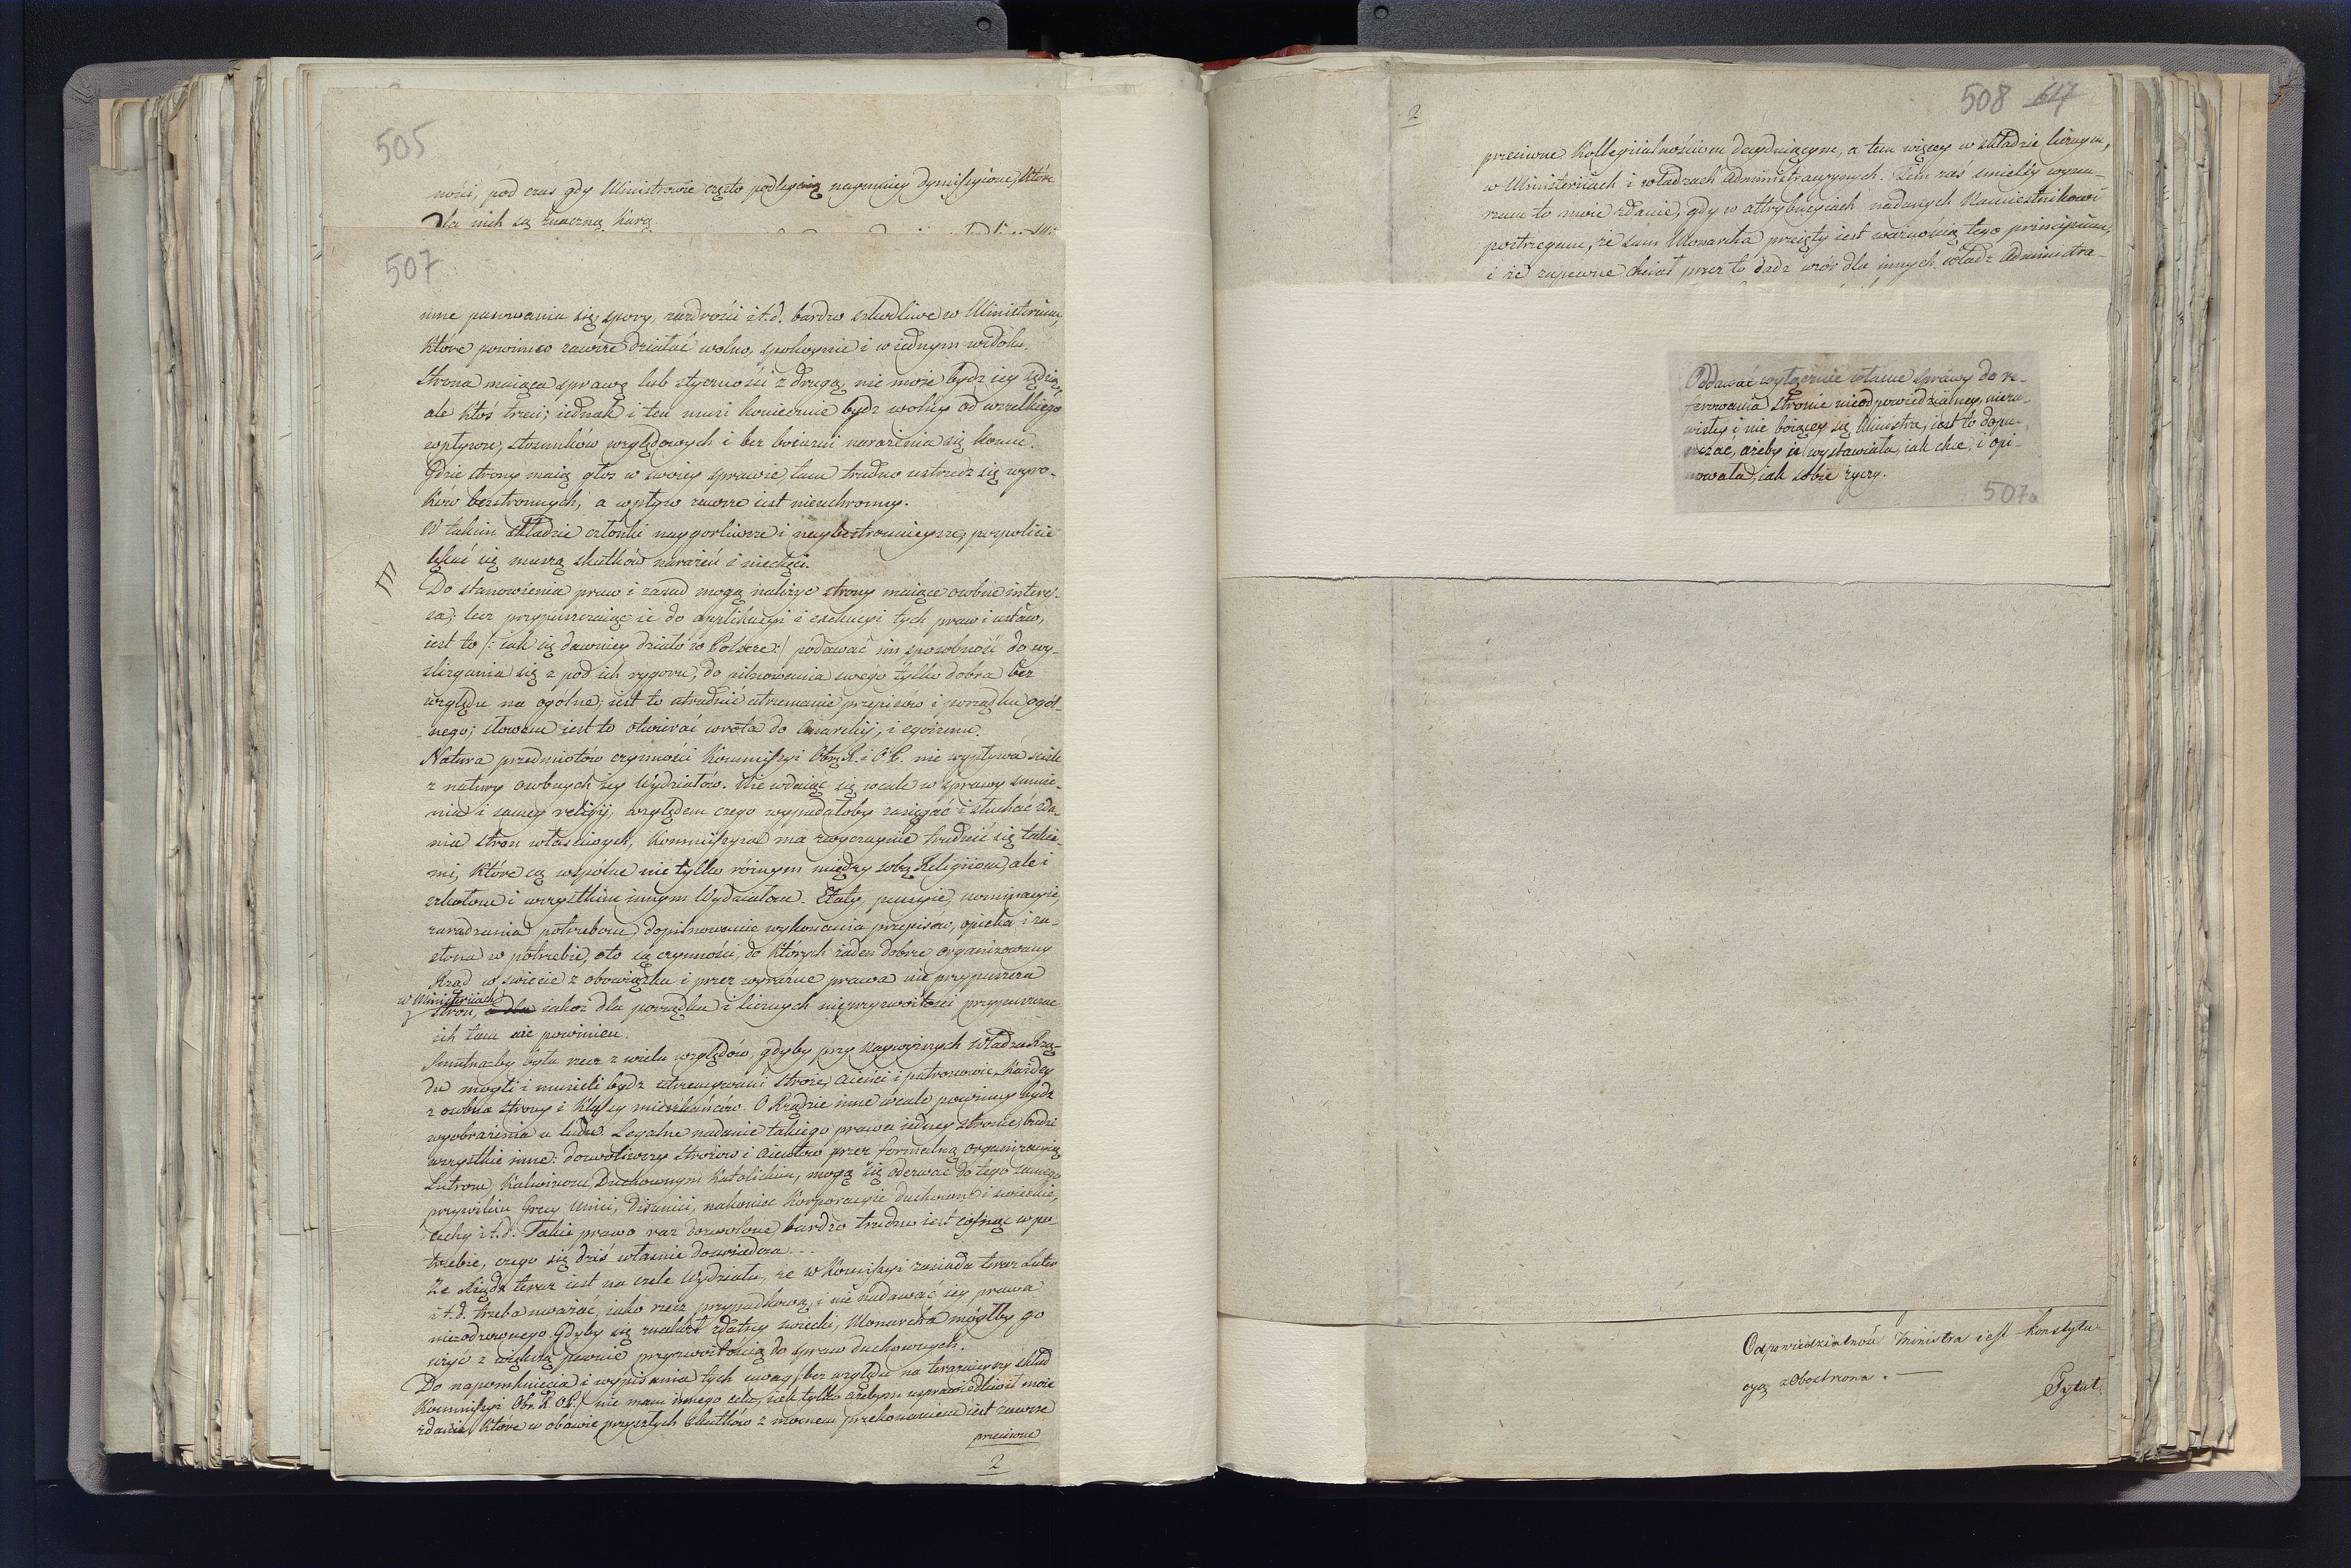 505
ności, pod czas gdy Ministrowie często podlegaią naymniey dymissyione, które
dla nich są znaczną karą.
507
inne passowania się, spory, zazdrości i t. d. bardzo szkodliwe w Ministerium,
które powinno zawsze działać wolno, spokoynie i w iednym widoku.
Strona maiąca sprawę lub styczność z drugą, nie może bydz iey sędzią,
ale ktoś trzeci; iednak i ten musi koniecznie bydz wolny od wszelkiego
wpływu, stosunków względowych i bez boiaźni narażenia się komu.
Gdzie strony maią głos w swoiey sprawie, tam trudno ustrzedz się wyro-
ków bezstronnych, a wpływ zawsze iest nieuchronny.
W takim składzie członki naygorliwsze i naybezstronnieysze, pospolicie
lękać się muszą skutków narażeń i niechęci.
Do stanowienia praw i zasad mogą należyć strony maiące osobne interes-
sa; lecz przypuszczaiąc ie do applikacyi i exekucyi tych praw i ustaw,
iest to /: iak się dawniey działo w Polszcze :/ podawać im sposobność do wy-
ślizgania się z pod ich rygoru, do pilnowania swego tylko dobra bez
względu na ogólne; iest to utrudnić utrzymanie przepisów i porządku ogól-
nego; słowem iest to otwierać wrota do Anarchij, i egoizmu.
Natura przedmiotów czynności Kommissyi Obrz. R. i O. P. nie wypływa ściśle
z natury osobnych iey Wydziałów. Nie wdaiąc się wcale w sprawy sumie-
nia i samey religij, względem czego wypadałoby zasięgać i słuchać zda-
nia stron właściwych, Kommissyia ma zwyczaynie trudnić się takie-
mi, które są wspólne nie tylko różnym między sobą Religiiom, ale i
szkołom i wszystkim innym Wydziałom. Etaty, pensyie, nominacyie,
zaradzenia potrzebom, dopilnowanie wykonania przepisów, opieka i za-
słona w potrzebie, oto są czynności, do których żaden dobrze organizowany
Rząd w świecie z obowiązku i przez wyraźne prawa nie przypuszcza
w Ministeriiach
stron, a dla iakoż dla porządku i licznych nieprzyzwoitości przypuszczać
ich tam nie powinien.
Smutna by była rzecz z wielu względów, gdyby przy naywyższych Władzach Rzą-
du mogli i musieli bydz utrzymywani stróże, aienci i patronowie, każdey
z osobna strony i klassy mieszkańców. O Rządzie inne wcale powinny bydz
wyobrażenia u ludu. Legalne nadanie takiego prawa iedney stronie, budzi
wszystkie inne: dozwoliwszy stróżów i aientów przez formalną organizacyią
Lutrom, Kalwinom, Duchownym Katolickim, mogą się odezwać do tego samego
przywileiu Grecy Unici, Disunici, nakoniec korporacyie duchowne i świeckie,
cechy i t. d. Takie prawo raz dozwolone, bardzo trudno iest cofnąć w po-
trzebie, czego się dziś właśnie doświadcza. . .
Że Xiądz teraz iest na czele Wydziału, że w Kommissyi zasiada teraz Luter
i t. d. trzeba uważać, iako rzecz przypadkową, i nie nadawać iey prawa
nieodzownego. Gdyby się znalazł zdatny świecki, Monarcha mógłby go
użyć z większą pewnie przyzwoitością do spraw duchownych.
Do napomknienia i wypisania tych uwag /: bez względu na teraznieyszy skład
Kommissyi Obr. R. O. P. :/ nie mam innego celu, iak tylko ażebym usprawiedliwił moie
zdanie, które w obawie przyszłych skutków z mocnem przekonaniem iest zawsze
przeciwne
2
2
508 617
przeciwne Kollegiialnościom decyduiącym, a tem więcey w składzie licznym,
w Ministeriiach i władzach Administracyynych. Tem zaś śmieley wyra-
żam to moie zdanie, gdy w attrybucyiach nadanych Namiestnikowi
postrzegam, że sam Monarcha przeięty iest ważnością tego principium,
i że zapewne chciał przez to dadz wzór dla innych władz Administra-
Oddawać wyłącznie własne sprawy do re-
ferowania stronie nieodpowiedzialney, nieza-
wisłey i nie boiącey się Ministra, iest to dopu-
szczać, ażeby ie wystawiała, iak chce, i opi-
niowała, iak sobie życzy.
507a
Odpowiedzialność Ministra iest Konstytu-
cyą zabostrzona. —
Tytuł.